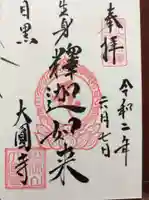 奉拝
令和二年
六月七日
生身
釋迦如来
目黒
大圓寺